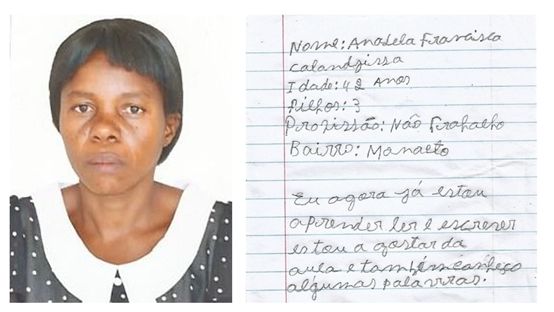 Nome: Anabela Francisca
Calandzissa
Idade: 42 Anos
Filhos: 7
Profissão: Não Trabalho
Bairro: Manaeto
Eu agora já estou
aprender ler e escrever
estou a gostar da
aula e também conheço
algumas palavras.